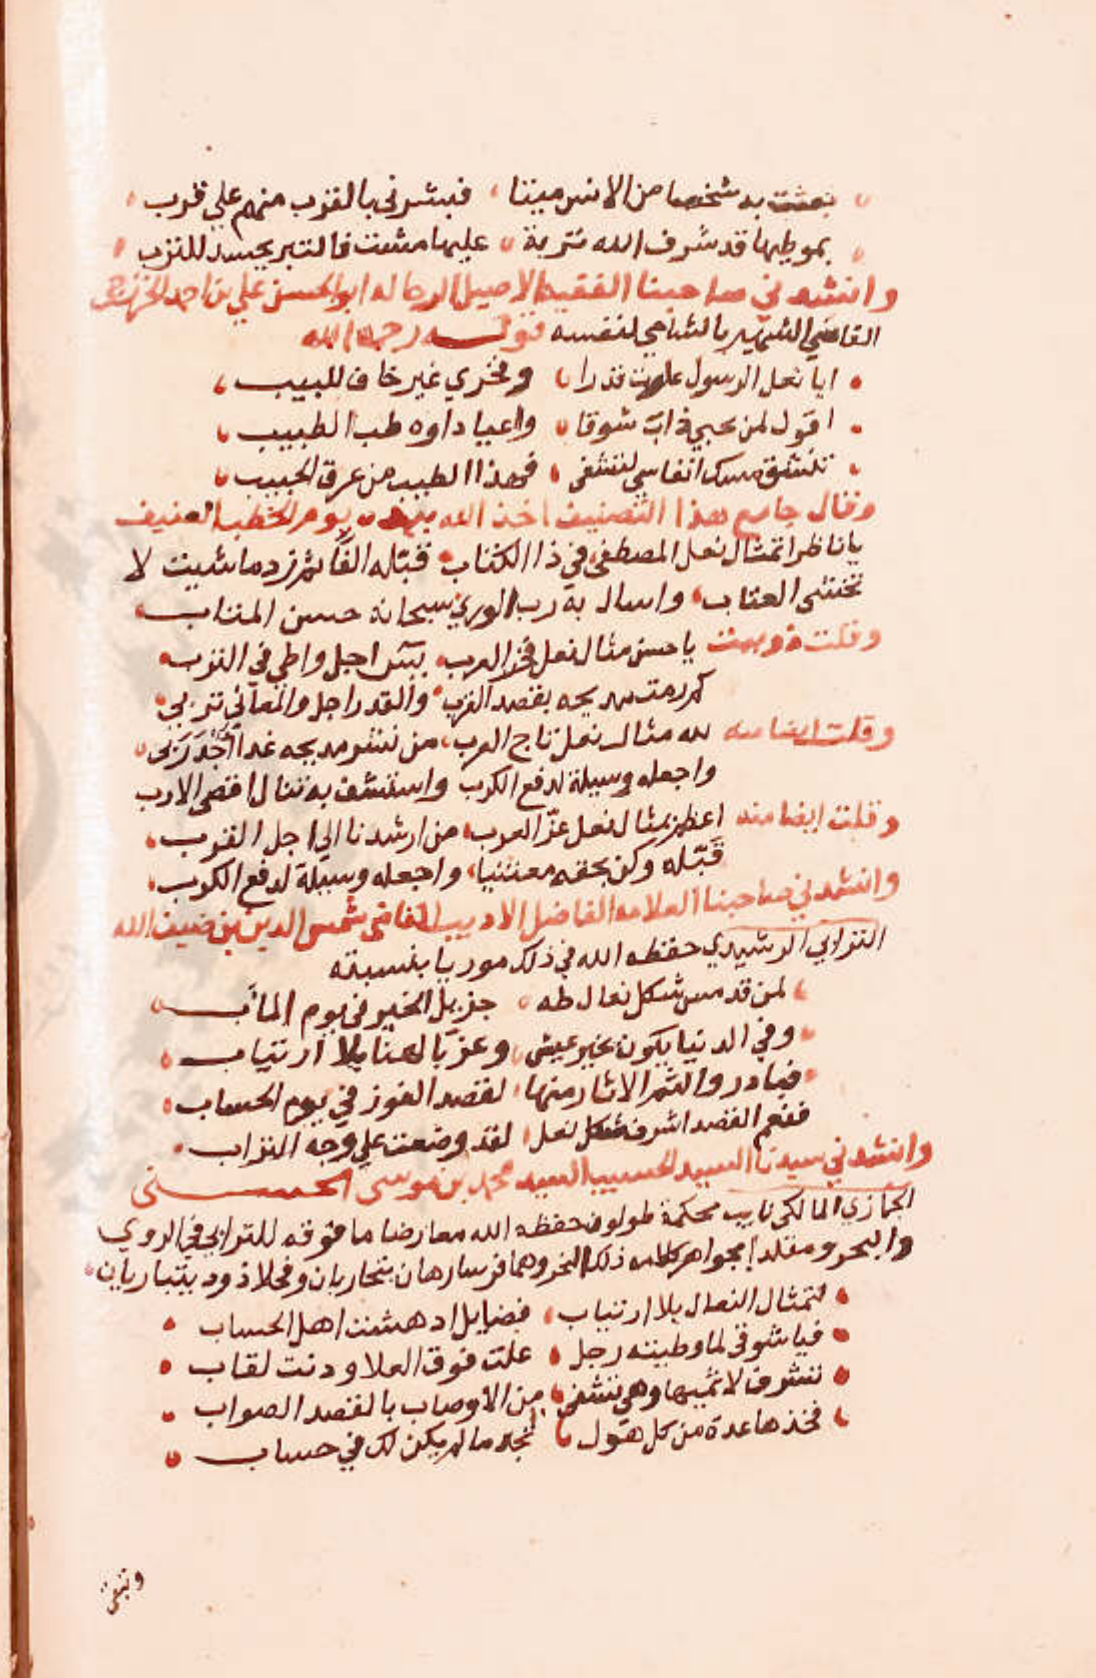 بعثت به شخصا من الانس ميتا فبشرني بالقرب منهم علي قرب
بموطيها قد شرف الله تربة عليها مشت فالتبر يحسد للترب
وانشدني صاحبنا الفقيه الاصيل الرحاله ابو الحسن علي بن احمد الخزرجي
القاضي الشهير بالشامي لنفسه قوله رحمه الله
ايا نعل الرسول علوت قدرا وفخري غير خاف للبيب
اقول لمن بحبي ذاب شوقا واعيا داوه طب الطبيب
تنشق مسك انفاسي لتشفي فهذا الطيب من عرق الحبيب
وقال جامع هذا التصنيف اخذ الله بيده يوم الخطب العنيف
يا ناظرا تمثال نعل المصطفى في ذا الكتاب قبله الفا ثم زد ما شيت لا
تختشى العتاب واسال به رب الورى سبحانه حسن المتاب
وقلت دوبيت يا حسن مثال نعل فخر العرب بيت اجل واطي في الترب
كم رمت مديحه بقصد القرب والقدر اجل والمعاني تربي
وقلت ايضا منه لله مثال نعل تاج العرب من نشر مديحه غدا اجدر بي
واجعله وسيلة لدفع الكرب واستشف به تنال اقصى الارب
وقلت ايضا منه اعظم بمثال نعل عز العرب من ارشدنا الي اجل القرب
قبله وكن بحقه معتنيا واجعله وسيلة لدفع الكرب
وانشدني صاحبنا العلامه الفاضل الاديب القاضي شمس الدين بن ضيف الله
الترابي الرشيدي حفظه الله في ذلك موريا بنسبته
لمن قد مس شكل نعال طه جزيل الخير في يوم المآب
وفي الدنيا يكون بخير عيش وعز بالهنا بلا ارتياب
فبادر والثم الاثار منها لقصد الفوز في يوم الحساب
فنعم القصد اشرف شكل نعل لقد وضعت علي وجه التراب
وانشدني سيدنا السيد الحسيب السيد محمد بن موسى الحسنى
الجمازي المالكي نايب محكمة طولون حفظه الله معارضا ما فوقه للترابي في الروي
والبحر ومقلدا بجواهر كلامه ذلك النحر وهما فرسا رهان يتجاريان وفحلا ذود يتباريان
لتمثال النعال بلا ارتياب فضايل ادهشت اهل الحساب
فيا شوقي لما وطيته رجل علت فوق العلا ودنت لقاب
تشرف لاثميها وهي تشفي من الاوصاب بالقصد الصواب
فخذها عدة من كل هول تجد ما لم يكن لك في حساب
وتبقى